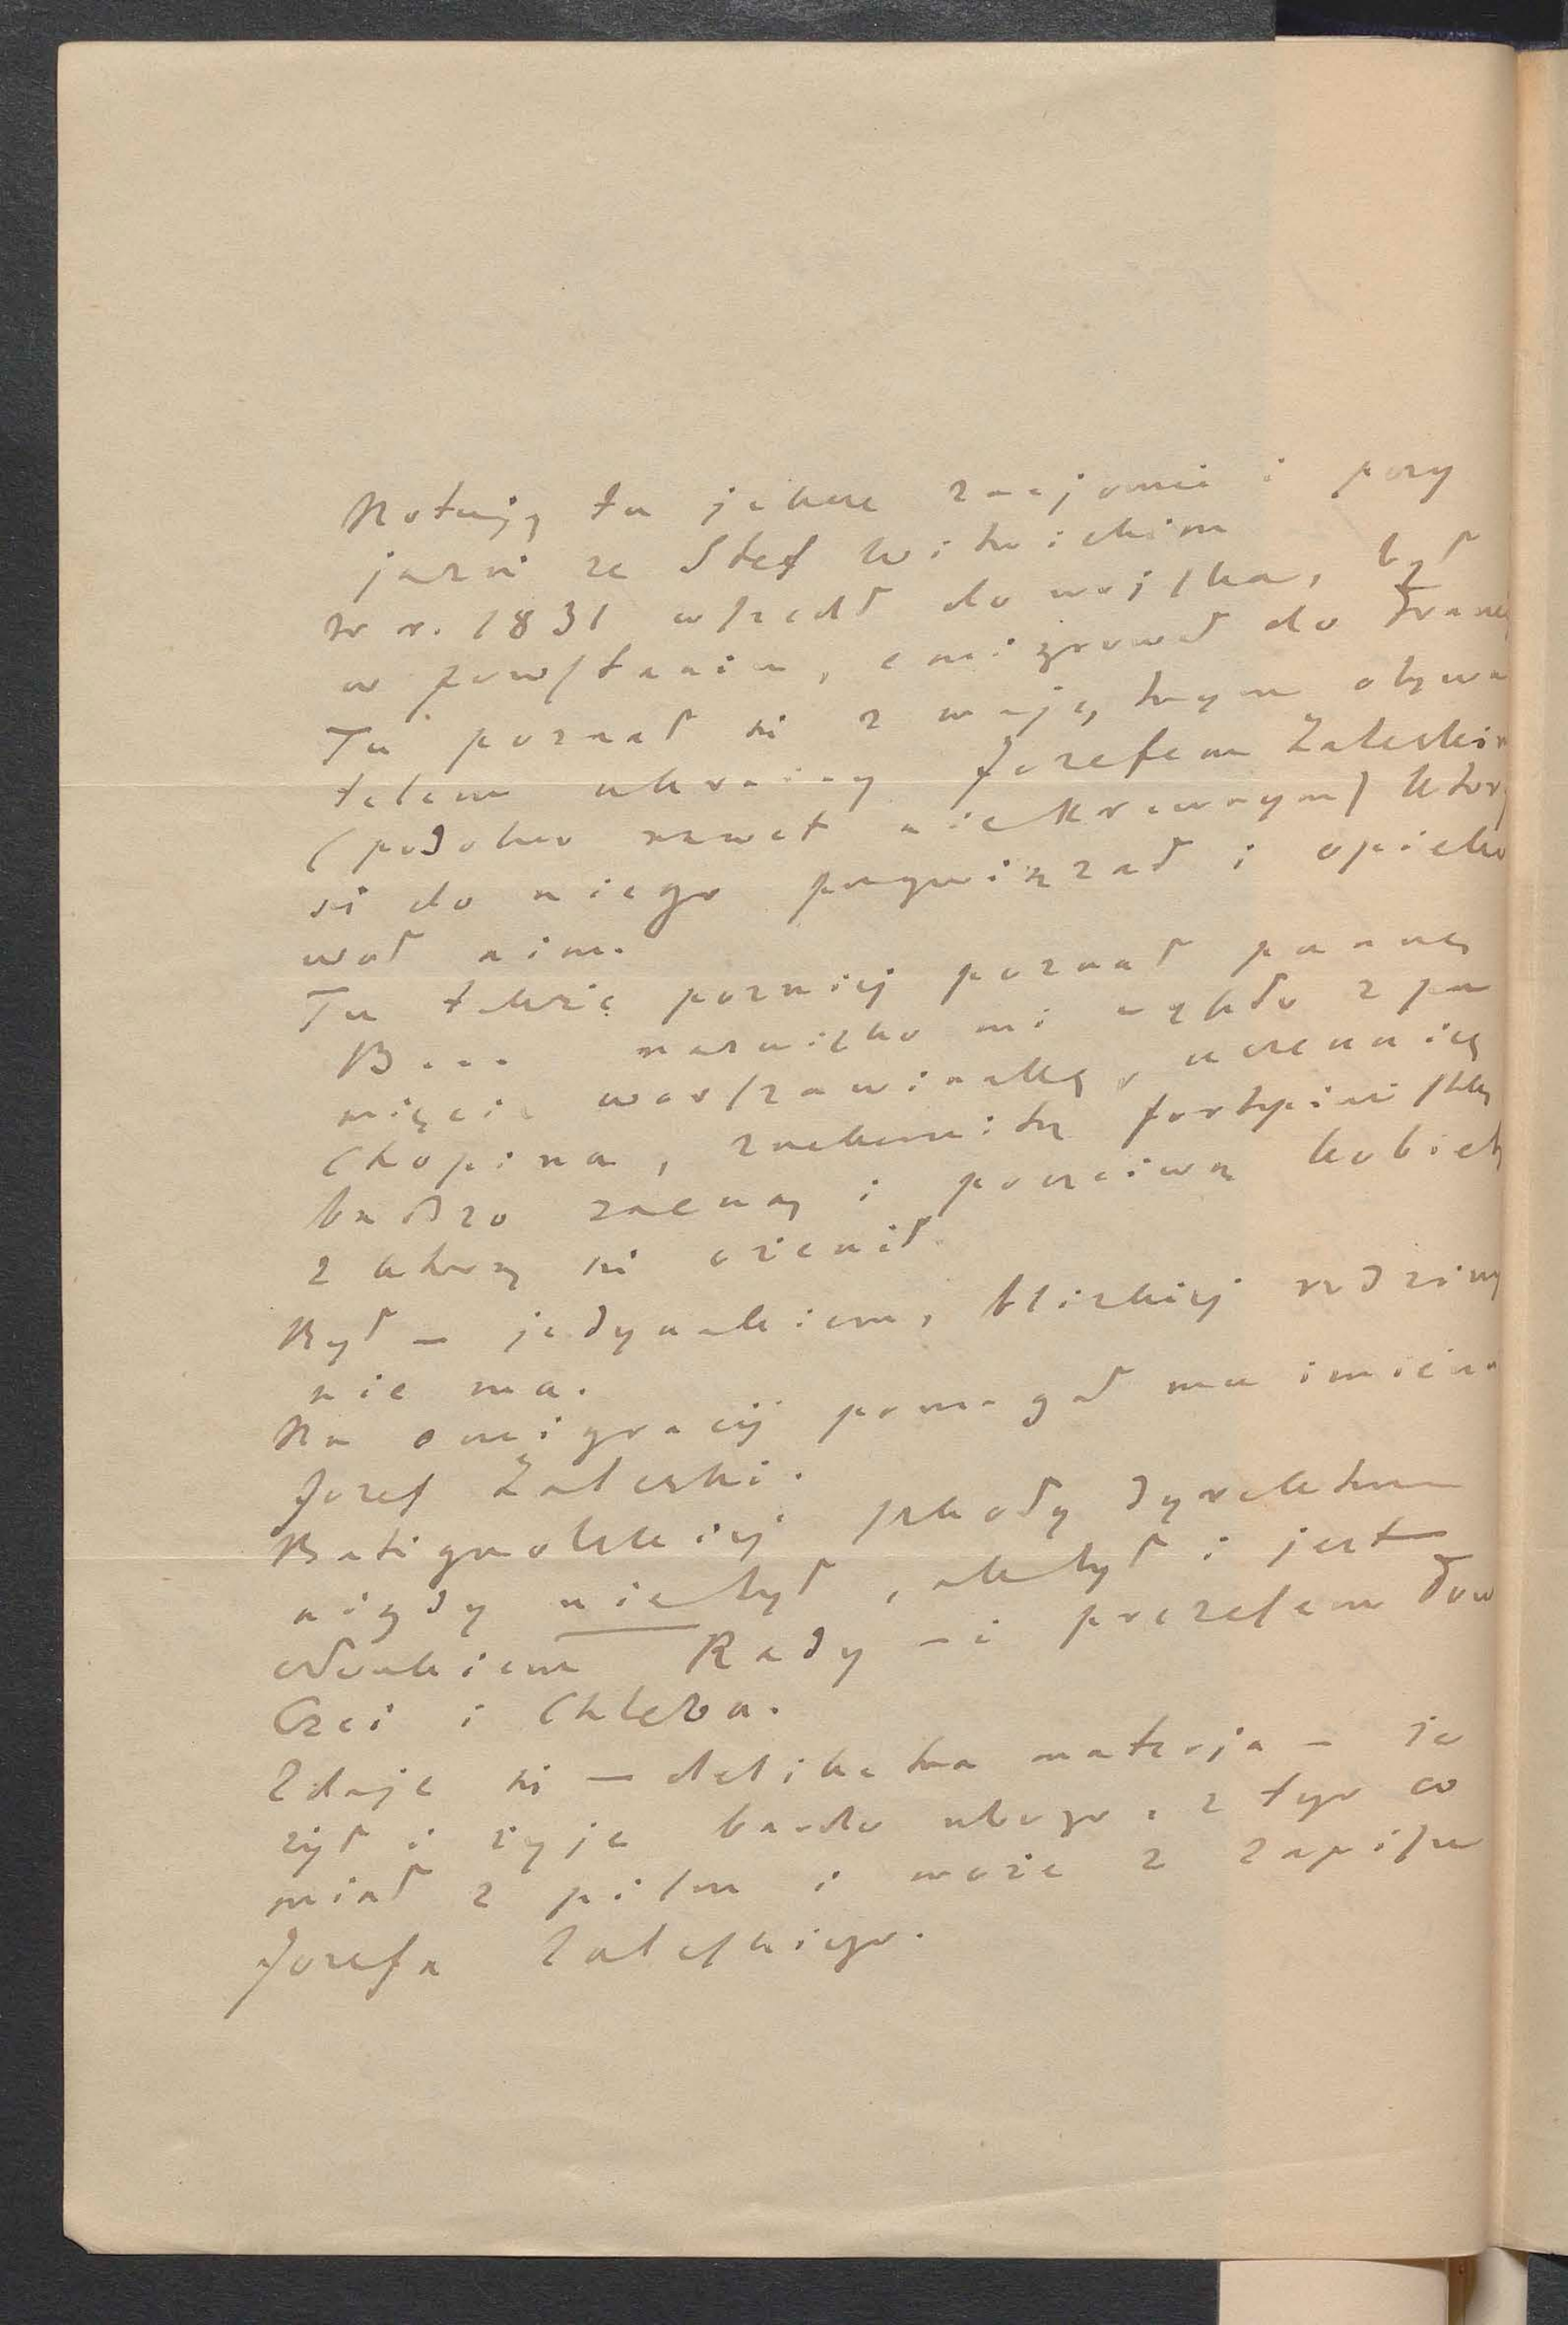 Notuję tu jedne znajomi i przy
jazni ze Stef Witwickim
W r. 1831 wszedł do wojska, był
w powstaniu, emigrował do Francy
Tu poznał si z majętnym obywa
telem ukrainy Jozefem Zaleskim
(podobno nawet niekrewnym) ktory
si do niego przywiązał i opieko
wał nim.
Tu takze pozniej poznał pannę
B... nazwisko mi uszło z pa
mięci warszawiankę, uczennicę
Chopina, znakomitą fortepianistkę
bardzo zacną i poczciwą kobietę
z ktorą si ożenił
Był – jedynakiem, blizkiej rodziny
nie ma.
Na emigracij pomagał mu
Jozef Zaleski.
Batignolskiej szkoły dyrektorem
nigdy niebył, ale był i jest
członkiem Rady – i prezesem Tow
Czci i Chleba.
Zdaje si – delikatna materja – że
żył i żyje bardo ubogo, z tego co
miał z pism i może z zapisu
Jozefa Zaleskiego.